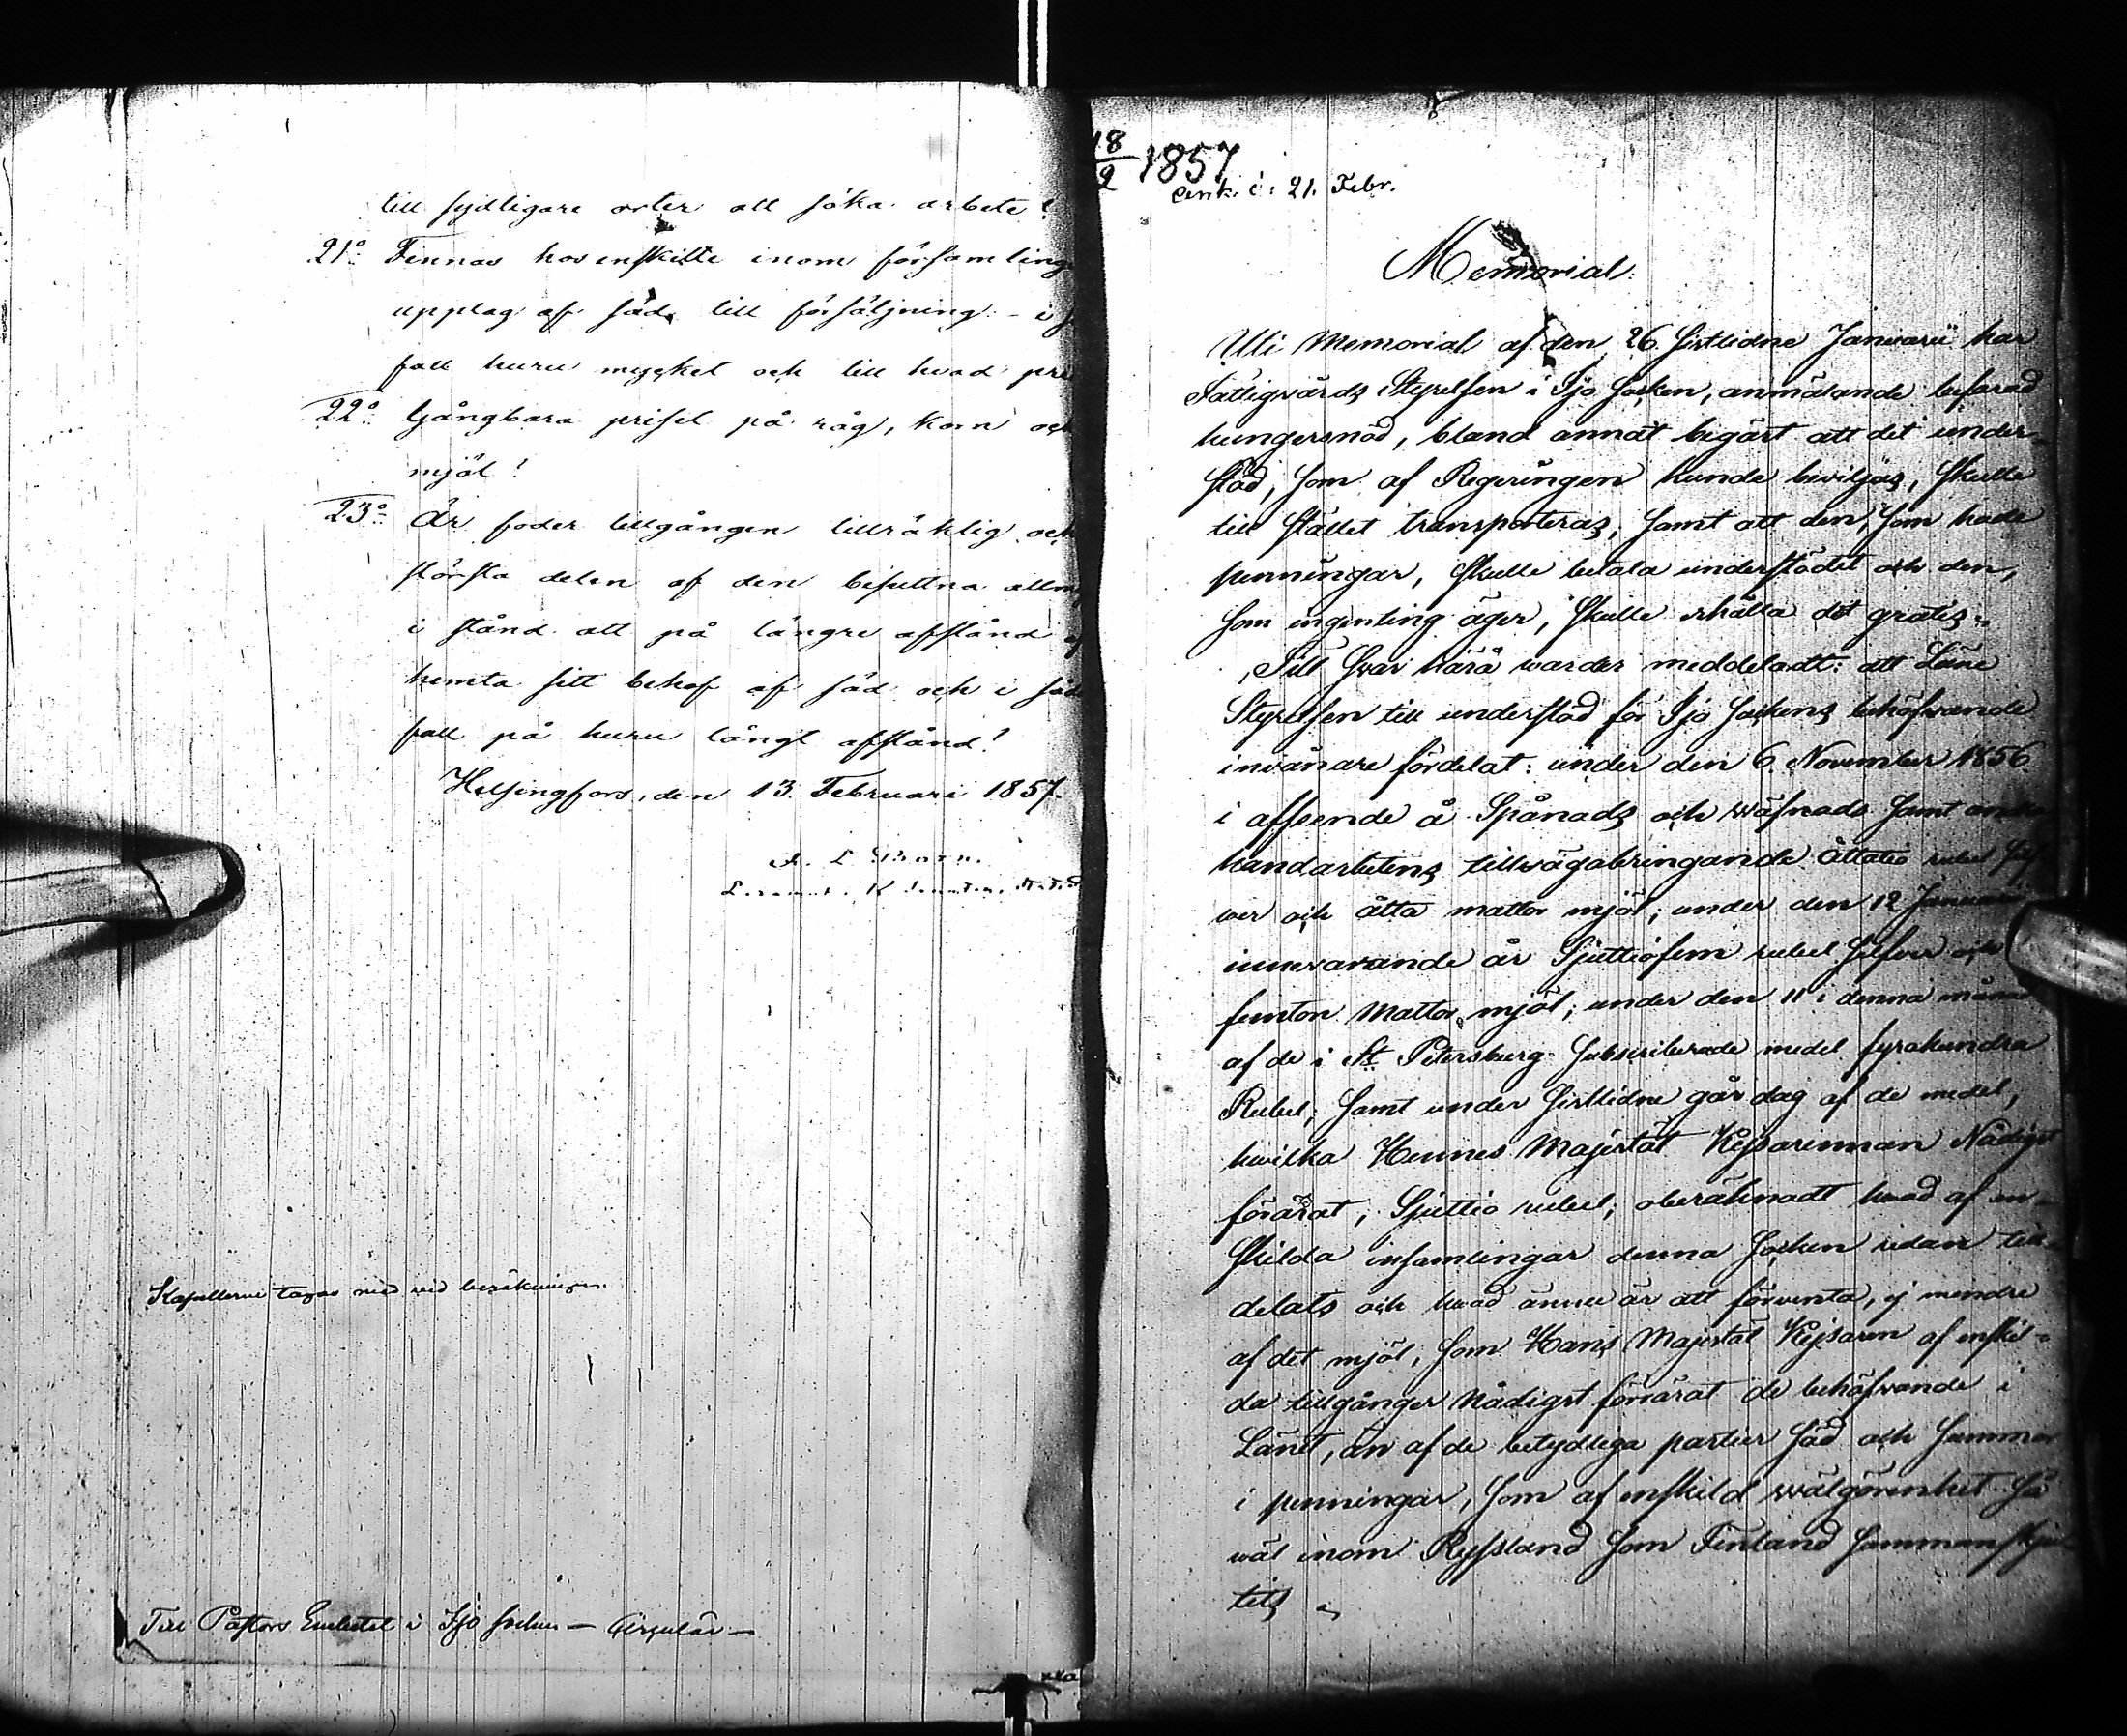 till sydligare orter att söka arbete?
21o Finnas hos enskilte inom församling
upplag af säd, till försäljning - i
fall huru mycket och till hvad pri
22o Gångbara priset på råg, korn och
mjöl?
23o Är foder tillgången tillräklig och
största delen af den besuttna allm
i stånd att på längre afstånd
hemta sitt behof af säd och i såd
fall på huru långt afstånd?
Helsingfors, den 13 Februari 1857.
Kapellerne tagas med vid beräkningen.
Till Pastors Embetet i Ijo socken - Cirkulär -
18/2 1857
ank. d. 21. Febr.
Memorial.
Uti Memorial af den 26 sistlidne Januarii har
Fattigvårds Styrelsen i Ijo Socken, anmälande befarad
hungersnöd, bland annat begärt att det under-
stöd, som af Regeringen kunde beviljas, skulle
till stället transporteras, samt att den, som hade
penningar, skulle betala understödet och den,
som ingenting äger, skulle erhålla det gratis.
Till svar härå warder meddeladt: att Läne
Styrelsen till understöd för Ijo Sockens behöfvande
invånare fördelat: under den 6 November 1856
i afseende å Spånads och Wäfnads samt andra
handarbetens tillvägabringande åttatio rubel silf
ver och åtta mattor mjöl; under den 12 Januari
innevarande år Sjuttiofem rubel silfver och
femton mattor mjöl; under den 11 i denna månad
af de i St. Petersburg subscriberade medel fyrahundra
Rubel, samt under sistlidne gårdag af de medel,
hwilka Hennes Majestät Kejsarinnan Nådigst
förärat, Sjuttio rubel; oberäknadt hvad af en-
skilda insamlingar denna socken redan till-
delats och hvad ännu är att förvänta, ej mindre
af det mjöl, som Hans Majestät Kejsaren af enskil-
da tillgångar Nådigst förärat de behöfvande i
Länet, än af de betydliga partier säd och summor
i penningar, som af enskild wälgörenhet så
wäl inom Ryssland som Finland sammanskju
tits